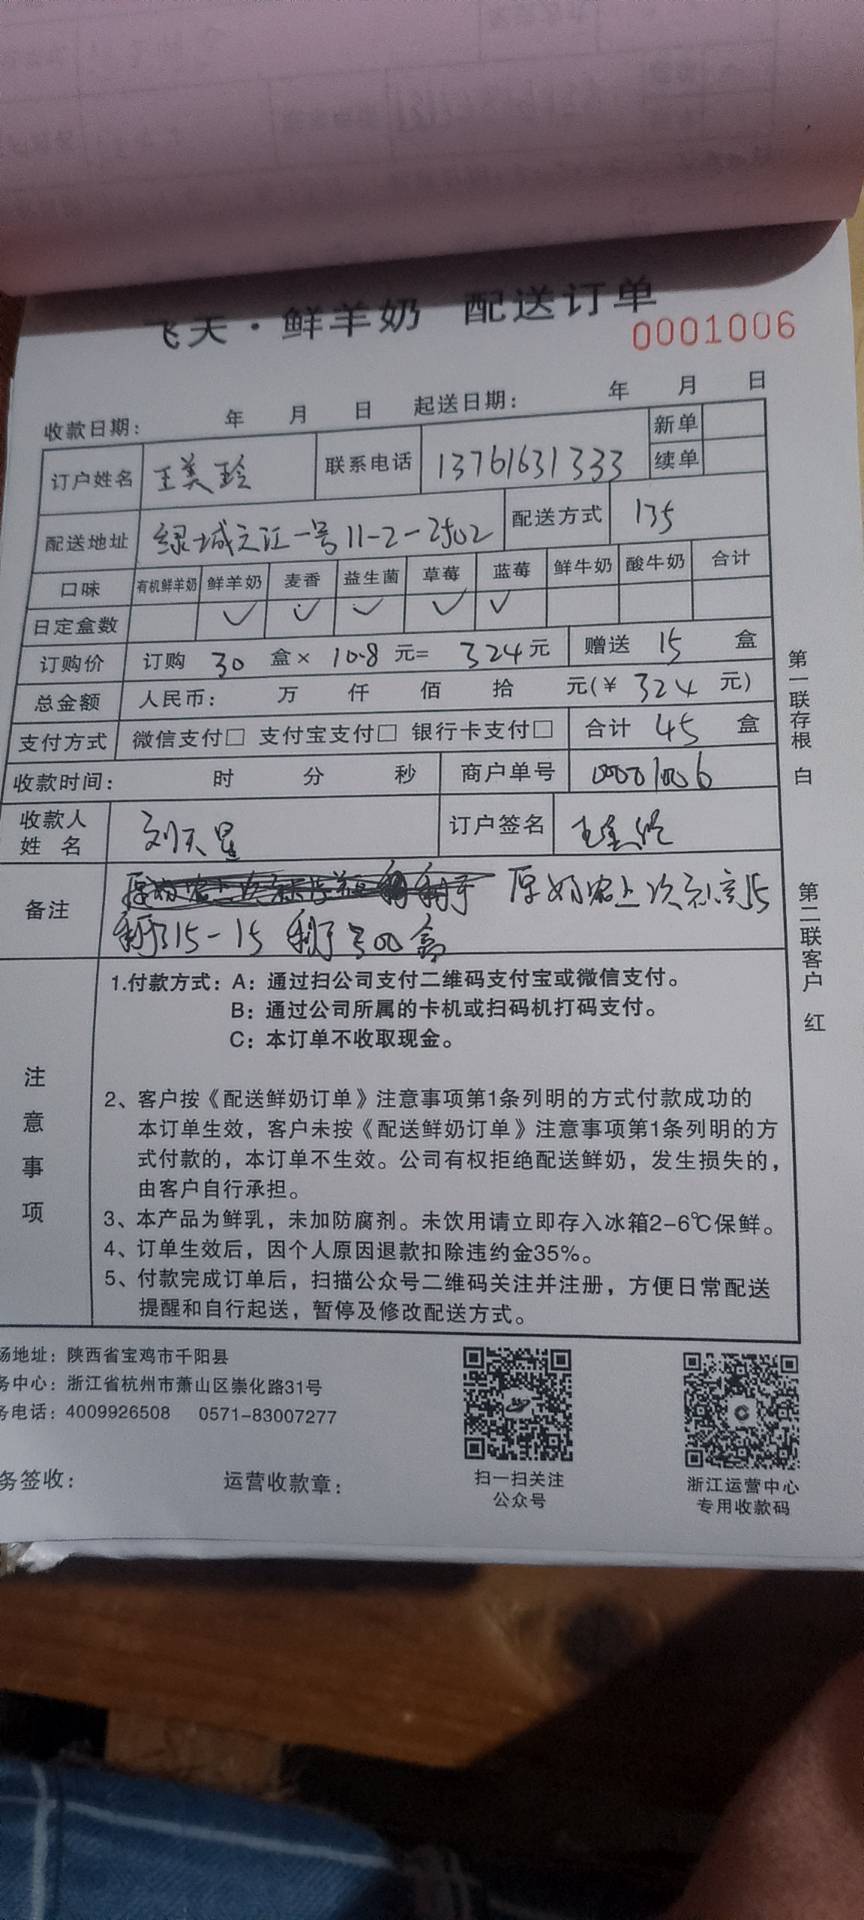 飞天·鲜羊奶 配送订单
0001006
收款日期： 年 月 日 起送日期： 年 月 日
订户姓名 王美玲 联系电话 13761631333 新单
续单
配送地址 绿城之江一号11-2-2502 配送方式 135
口味 有机鲜羊奶 鲜羊奶 麦香 益生菌 草莓 蓝莓 鲜牛奶 酸牛奶 合计
日定盒数 ✓ ✓ ✓ ✓ ✓
订购价 订购 30 盒× 10.8 元= 324元 赠送 15 盒
总金额 人民币： 万 仟 佰 拾 元(¥ 324 元)
支付方式 微信支付□ 支付宝支付□ 银行卡支付□ 合计 45 盒
收款时间： 时 分 秒 商户单号 0001006
收款人
姓 名 刘天星 订户签名
备注 原奶 上次
15-15 盒
注意事项
1.付款方式：A：通过扫公司支付二维码支付宝或微信支付。
B：通过公司所属的卡机或扫码机打码支付。
C：本订单不收取现金。
2、客户按《配送鲜奶订单》注意事项第1条列明的方式付款成功的
本订单生效，客户未按《配送鲜奶订单》注意事项第1条列明的方
式付款的，本订单不生效。公司有权拒绝配送鲜奶，发生损失的，
由客户自行承担。
3、本产品为鲜乳，未加防腐剂。未饮用请立即存入冰箱2-6℃保鲜。
4、订单生效后，因个人原因退款扣除违约金35%。
5、付款完成订单后，扫描公众号二维码关注并注册，方便日常配送
提醒和自行起送，暂停及修改配送方式。
第一联存根 白
第二联客户 红
场地址：陕西省宝鸡市千阳县
务中心：浙江省杭州市萧山区崇化路31号
务电话：4009926508 0571-83007277
务签收： 运营收款章：
扫一扫关注
公众号
浙江运营中心
专用收款码